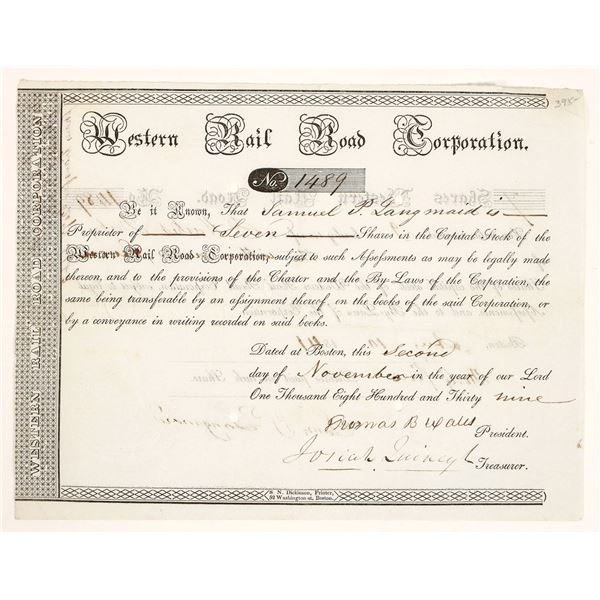 395-
WESTERN RAIL ROAD CORPORATION
Western Rail Road Corporation.
No. 1489
Be it Known, That Samuel P. Langmaid is
Proprietor of Seven Shares in the Capital Stock of the
Western Rail Road Corporation, subject to such Assessments as may be legally made
thereon, and to the provisions of the Charter and the By-Laws of the Corporation, the
same being transferable by an assignment thereof, on the books of the said Corporation, or
by a conveyance in writing recorded on said books.
Dated at Boston, this Second
day of November in the year of our Lord
One Thousand Eight Hundred and Thirty nine
Thomas B Wales
President.
Josiah Quincy Jr
Treasurer.
S. N. Dickinson, Printer,
52 Washington st. Boston.